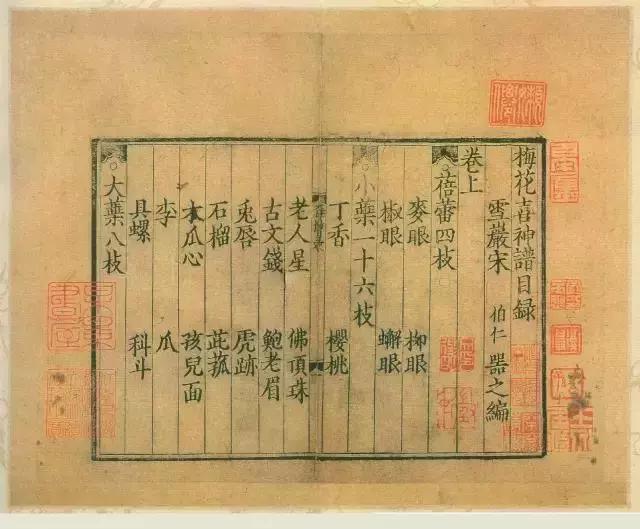 梅花喜神譜目録
雪巖宋 伯仁 器之編
卷上
蓓蕾四枝
麥眼 柳眼
椒眼 蠏眼
小蘂一十六枝
丁香 櫻桃
老人星 佛頂珠
古文錢 鮑老眉
兎唇 虎跡
石榴 茈菰
木瓜心 孩兒面
李 瓜
貝螺 科斗
大蘂八枝